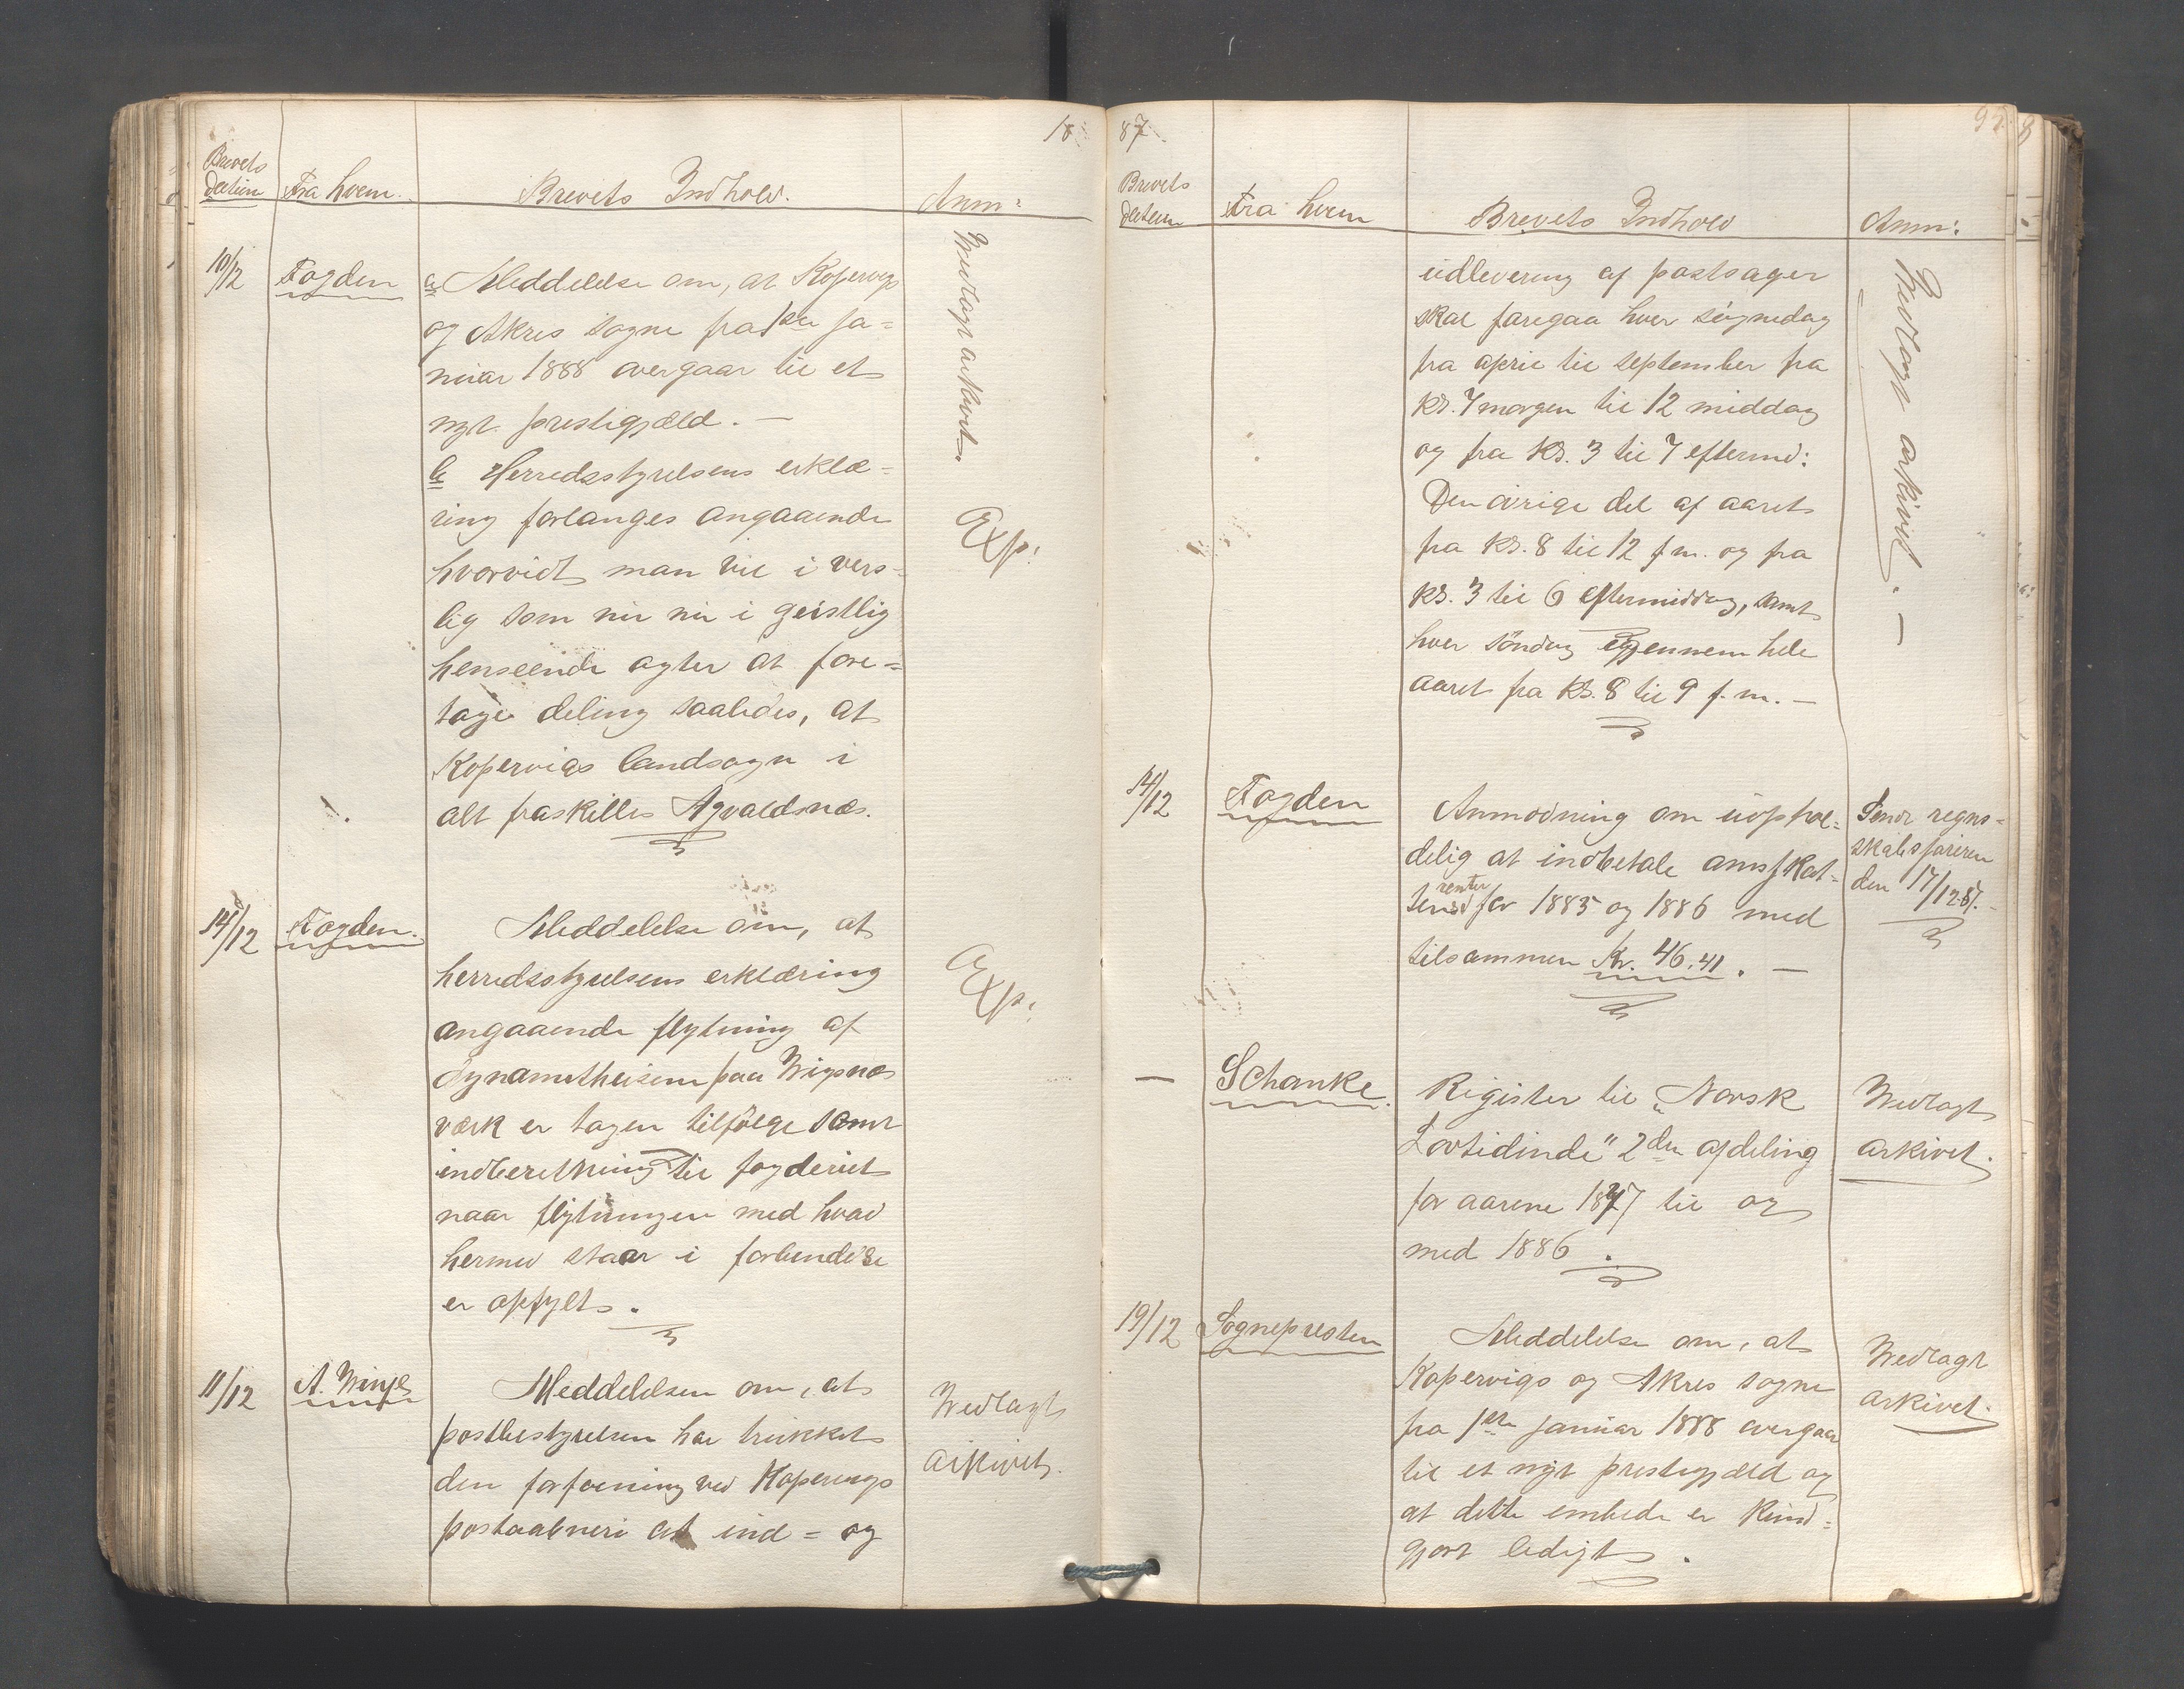 18
Brevets
Datum
Fra hvem.
Brevets Indhold.
Anm:
10/12
Fogden
a Meddelelse om, at Kopervigs
og Akres sogne fra 1ste ja=
nuar 1888 overgaar til et
nyt prestegjæld. —
Nedlagt arkivet.
b Herredsstyrelsens erklæ=
ring forlanges angaaende
hvorvidt man vil i vers=
lig som nu i geistlig
henseende agter at fore=
tage deling saaledes, at
Kopervigs landsogn i
alt fraskilles Agvaldsnæs.
Exp:
14/12
Fogden.
Meddelelse om, at
herredsstyrelsens erklæring
angaaende flytning af
dynamithuisene paa Wigsnæs
værk er tagen tilfølge samt
indberetning til fogderiet
naar flytningen med hvad
hermed staar i forbindelse
er opfyldt.
Exp:
11/12
A. Winje
Meddelelsen om, at
postbestyrelsen har trukket
den forføining ved Kopervigs
postaabneri at ind = og
Nedlagt
arkivet.
87
Brevets
Datum
Fra hvem
Brevets Indhold
Anm:
udlevering af postsager
skal foregaa hver søgnedag
fra april til september fra
kl. 7 morgen til 12 middag
og fra kl. 3 til 7 eftermd:
Den øvrige del af aaret
fra kl. 8 til 12 f m. og fra
kl. 3 til 6 eftermiddag, samt
hver søndag igjennem hele
aaret fra kl. 8 til 9 f. m. —
Nedlagt arkivet. —
14/12
Fogden
Anmodning om uophol=
delig at indbetale amtskat=
renter
for 1885 og 1886 med
tilsammen Kr. 46.41. —
Sendt regns=
skabsføreren
den 17/12 87.
—
Schanke.
Register til „Norsk
Lovtidinde" 2den afdeling
for aarene 1877 til og
med 1886.
Nedlagt
arkivet.
19/12
Sognepresten
Meddelelse om, at
Kopervigs og Akres sogne
fra 1ste januar 1888 overgaar
til et nyt prestegjæld og
at dette embede er kund=
gjort ledigt.
Nedlagt
arkivet.